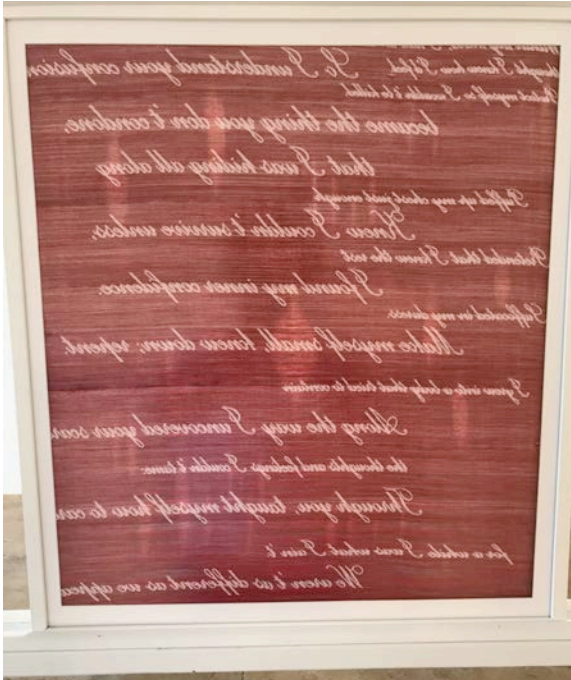 thought I knew how I'd feel,
So I understand your confusion
myself so I wouldn't be killed.
became the thing you don't condone.
that I was hiding all along
Puffed up my chest just enough
Knew I couldn't survive unless,
Pretended that I knew the rest
I found my inner confidence.
Suffocated in my duress.
Make myself small, knew down; repent.
I grew into a body that tried to contain
Along the way I uncovered your scar
the thoughts and feelings I couldn't tame.
Through you, taught myself how to car
for a while I was what I ain't.
We aren't as different as we appea